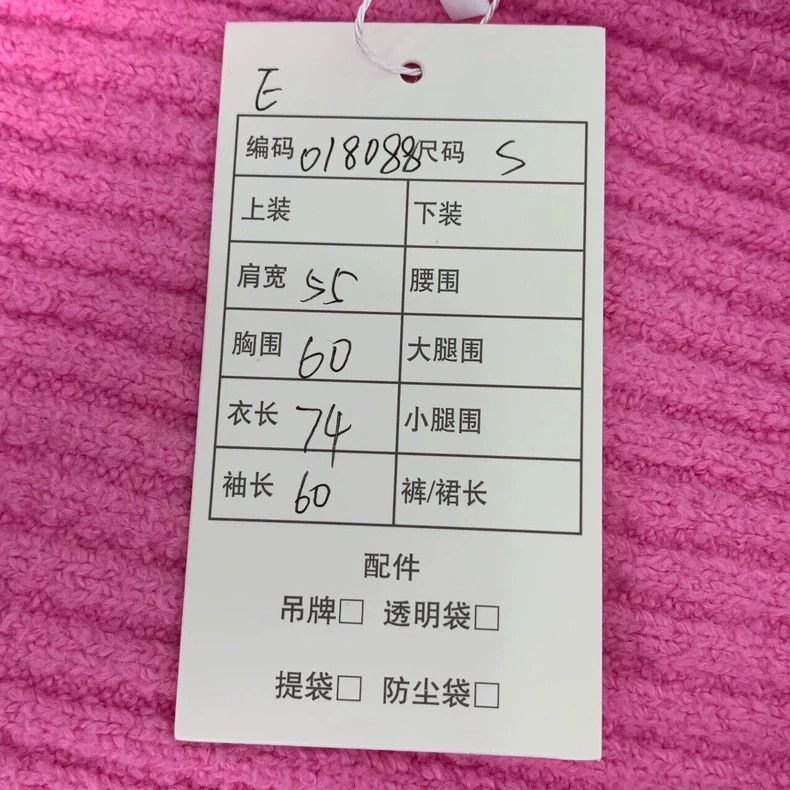 E
编码 018088 尺码 S
上装 下装
肩宽 55 腰围
胸围 60 大腿围
衣长 74 小腿围
袖长 60 裤/裙长
配件
吊牌□ 透明袋□
提袋□ 防尘袋□